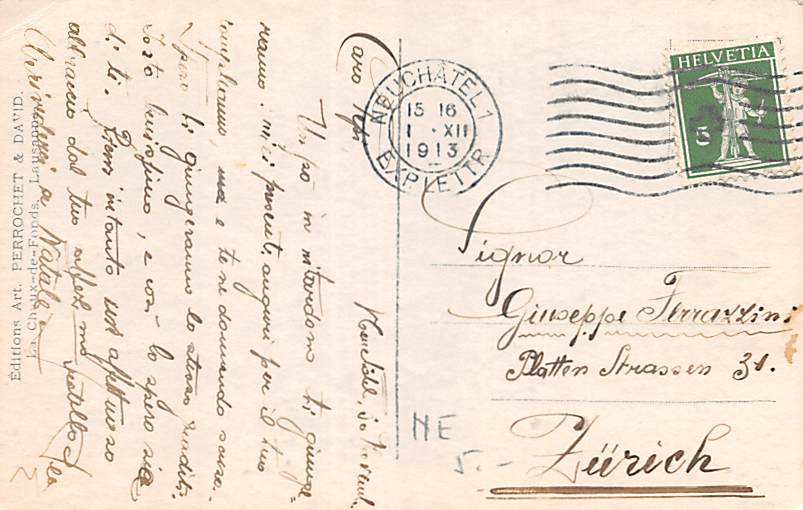 Neuchâtel,
Caro
Un po' in ritardo ti giunge-
ranno i miei presenti auguri per il tuo
compleanno, ma e te ne domando scusa.
Spero ti giungeranno lo stesso graditi.
Io sto benissimo, e così lo spero sia
di te. Ricevi intanto un affettuoso
abbraccio dal tuo fratello
Arrivederci a Natale
Éditions Art. PERROCHET & DAVID.
La Chaux-de-Fonds, Lausanne
NEUCHÂTEL 1
15 16
1 · XII
1913
EXP. LETTR.
HELVETIA
5
Signor
Giuseppe Ferrazzini
Platten Strassen 31.
Zürich
NE
5.-